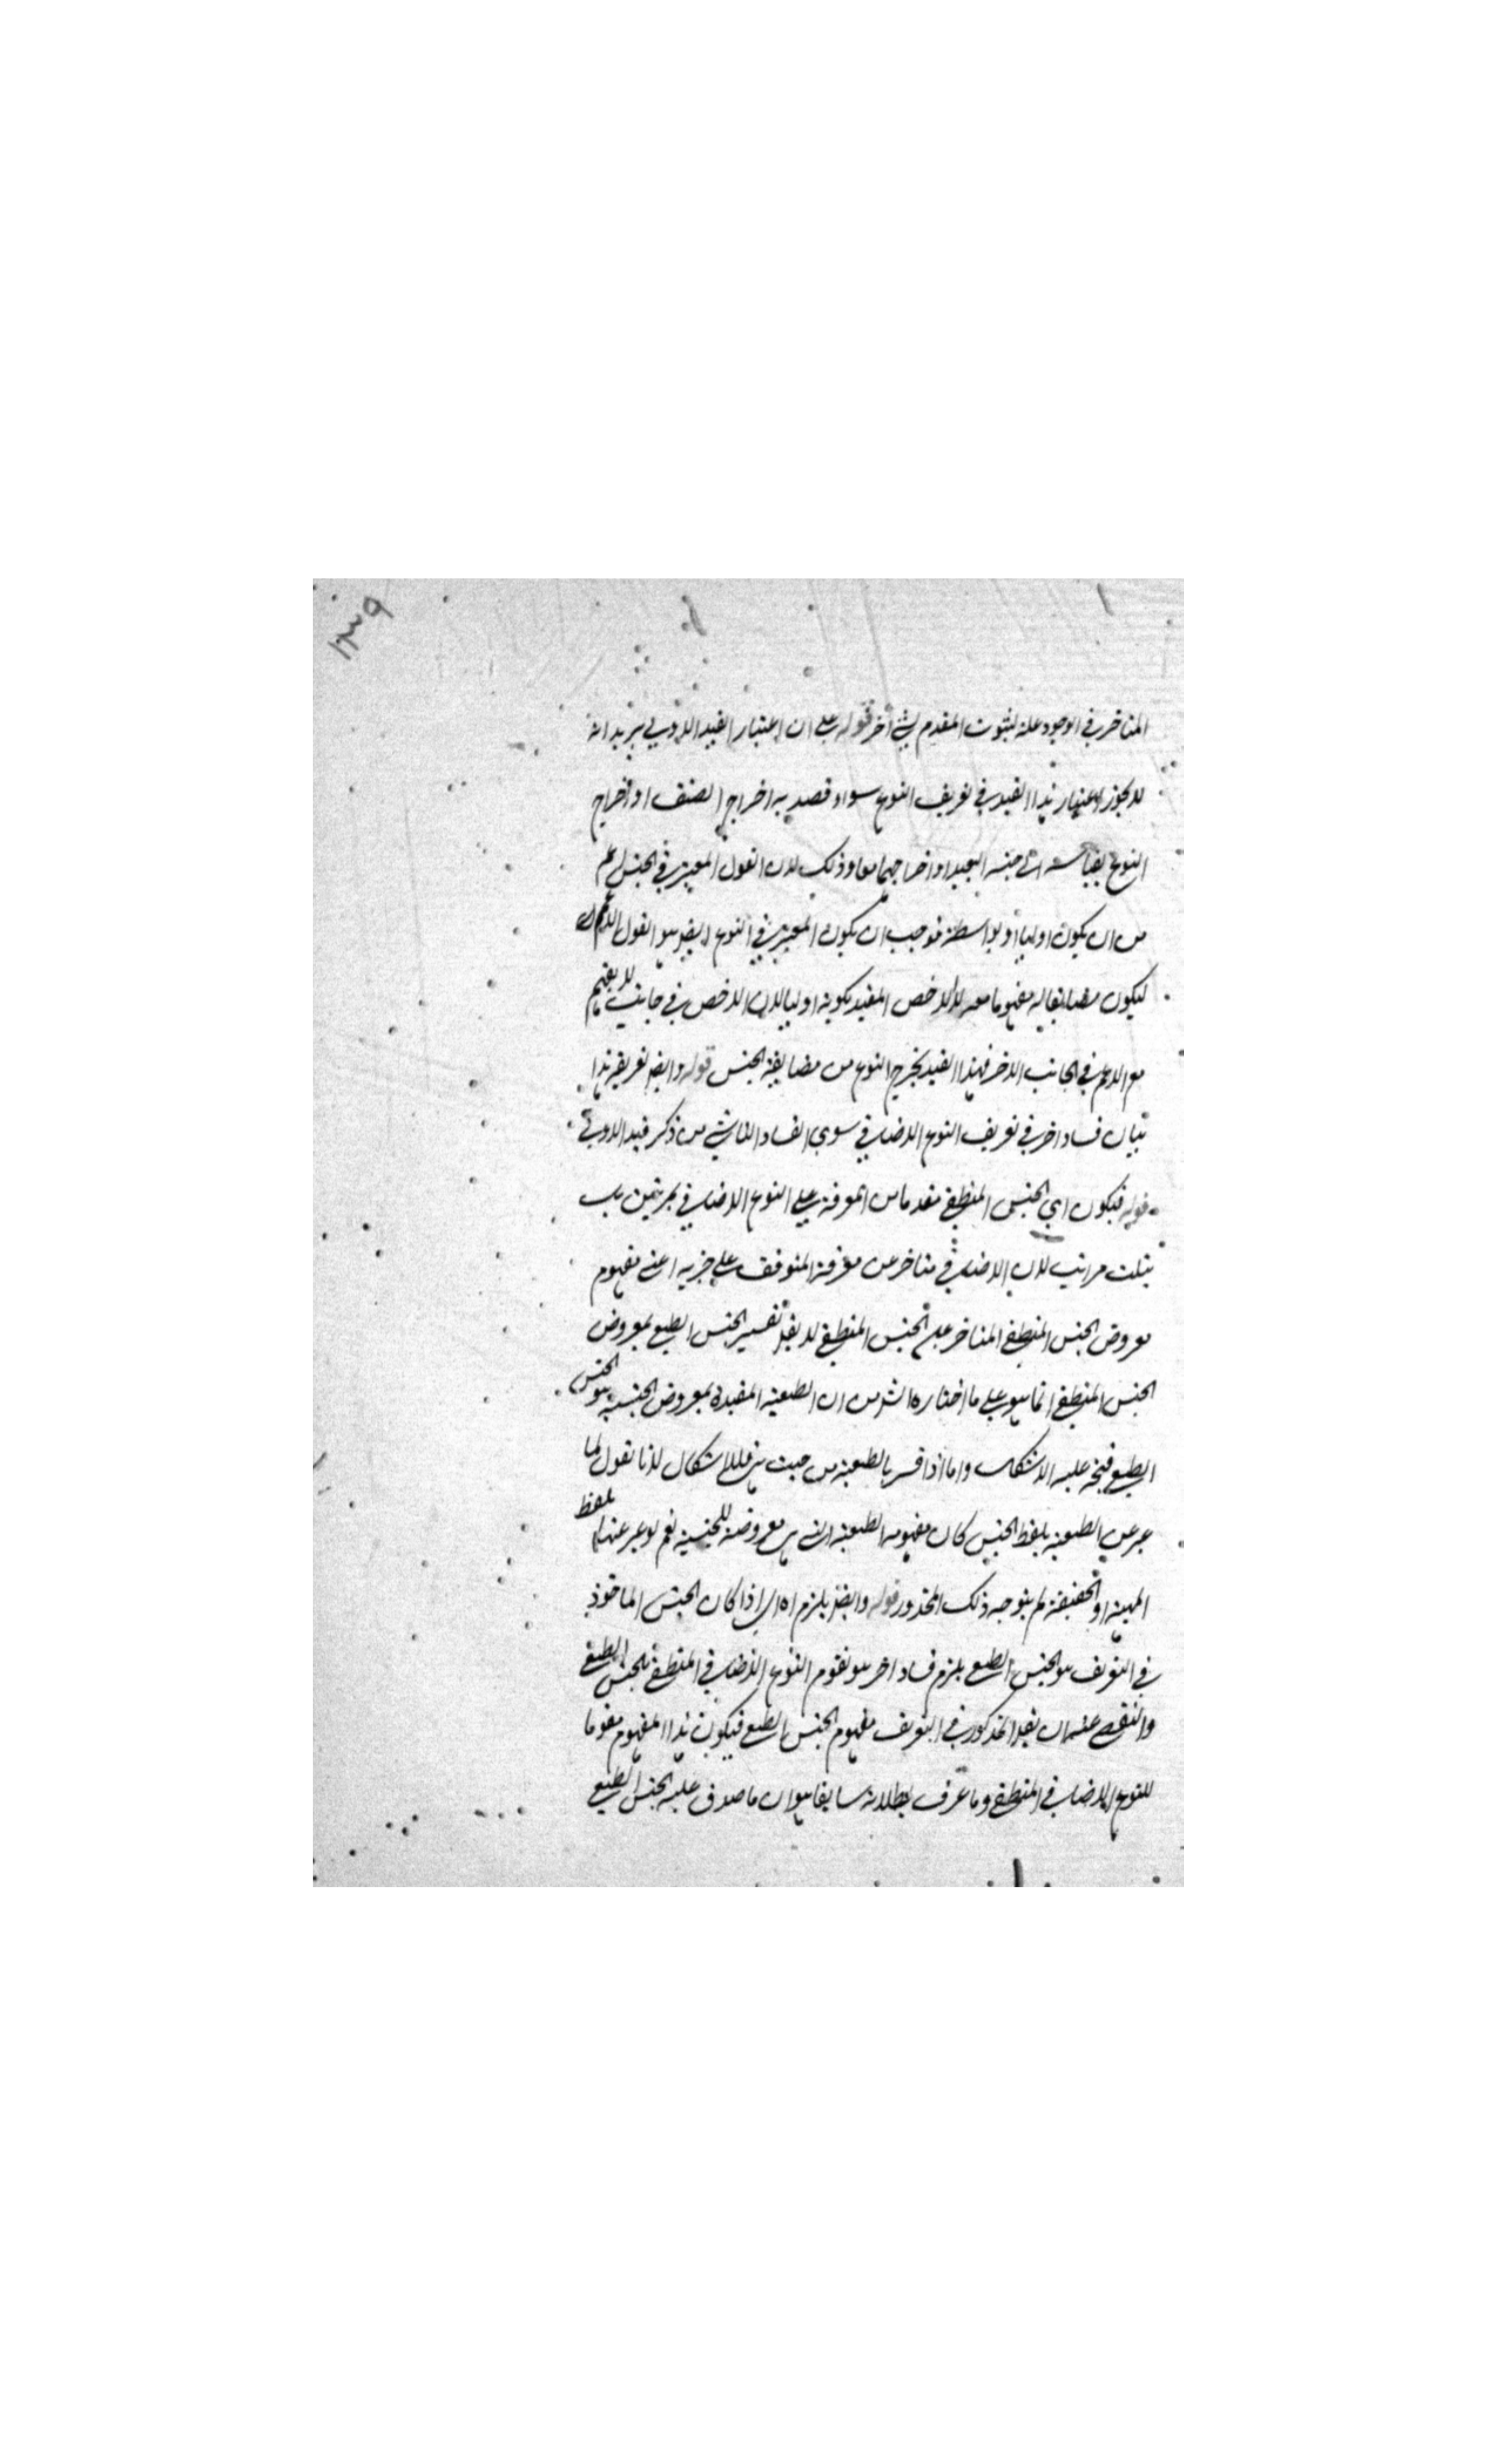 ١٣٩
المتاخر في الوجود علة لثبوت المقدم لشئ آخر قوله على ان اعتبار القيد الاولي يريد انه
لا يجوز اعتبار هذا القيد في تعريف النوع سواء قصد به اخراج الصنف او اخراج
النوع بقياسه الى جنسه البعيد او اخراجهما معا وذلك لان القول المعتبر في الجنس اعم
من ان يكون اوليا او بواسطة فوجب ان يكون المعتبر في النوع ايضا هو القول الاعم
ليكون مضايفا له مفهوما معه لا الاخص المقيد بكونه اوليا لان الاخص في جانب لا يفهم
مع الاعم في الجانب الاخر فهذا القيد يخرج النوع من مضايفة الجنس قوله وايضا تعريفه هذا
بيان فساد اخر في تعريف النوع الاضافي سوى الفساد الناشي من ذكر قيد الاولي
قوله فيكون اي الجنس المنطقي مقدما من المعرفة على النوع الاضافي بمرتبتين بل
بثلث مراتب لان الاضافي متاخر عن معرفة المتوقف على جزيه اعني مفهوم
معروض الجنس المنطقي المتاخر عن الجنس المنطقي لا يقال تفسير الجنس الطبيعي بمعروض
الجنس المنطقي انما هو على ما اختاره الش من ان الطبيعة المقيدة بمعروض الجنسية هو الجنس
الطبيعي فيتجه عليه الاشكال واما اذا فسر بالطبيعة من حيث هي فلا اشكال لانا نقول لما
عبر عن الطبيعة بلفظ الجنس كان مفهومه الطبيعة التي هي معروضة للجنسية نعم لو عبر عنها بلفظ
المهية او الحقيقة لم يتوجه ذلك المحذور قوله وايضا يلزم اه اي اذا كان الجنس الماخوذ
في التعريف هو الجنس الطبيعي يلزم فساد اخر هو تقوم النوع الاضافي المنطقي بالجنس الطبيعي
والتفصي عنه ان يقال المذكور في التعريف مفهوم الجنس الطبيعي فيكون هذا المفهوم مقوما
للنوع الاضافي المنطقي وما عرف بطلانه سابقا هو ان ما صدق عليه الجنس الطبيعي